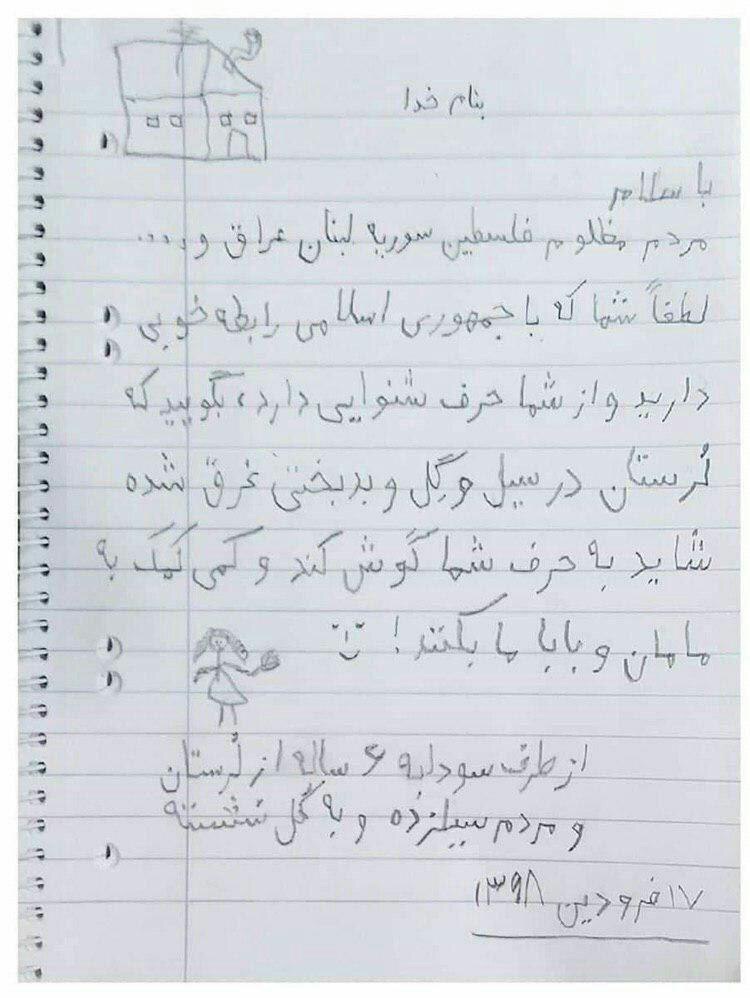 بنام خدا
با سلام
مردم مظلوم فلسطین سوریه لبنان عراق و....
لطفاً شما که با جمهوری اسلامی رابطه خوبی
دارید و از شما حرف شنوایی دارد، بگویید که
لُرستان در سیل و گِل و بدبختی غرق شده
شاید به حرف شما گوش کند و کمی کمک به
مامان و بابا ما بکنند!
از طرف سودابه ۶ ساله از لُرستان
و مردم سیلزده و به گل نشسته
۱۷ فرودین ۱۳۹۸